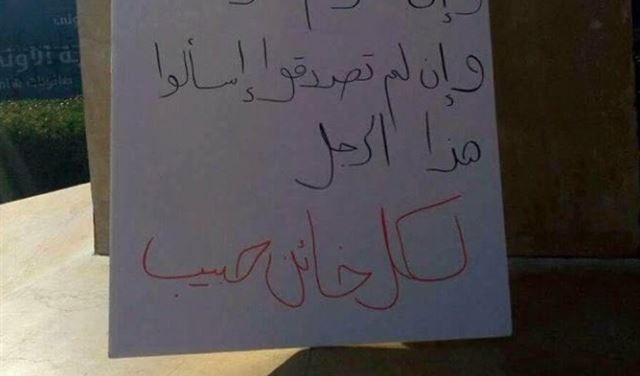 وإن لم تصدقوا إسألوا
هذا الرجل
لكل خائن حبيب